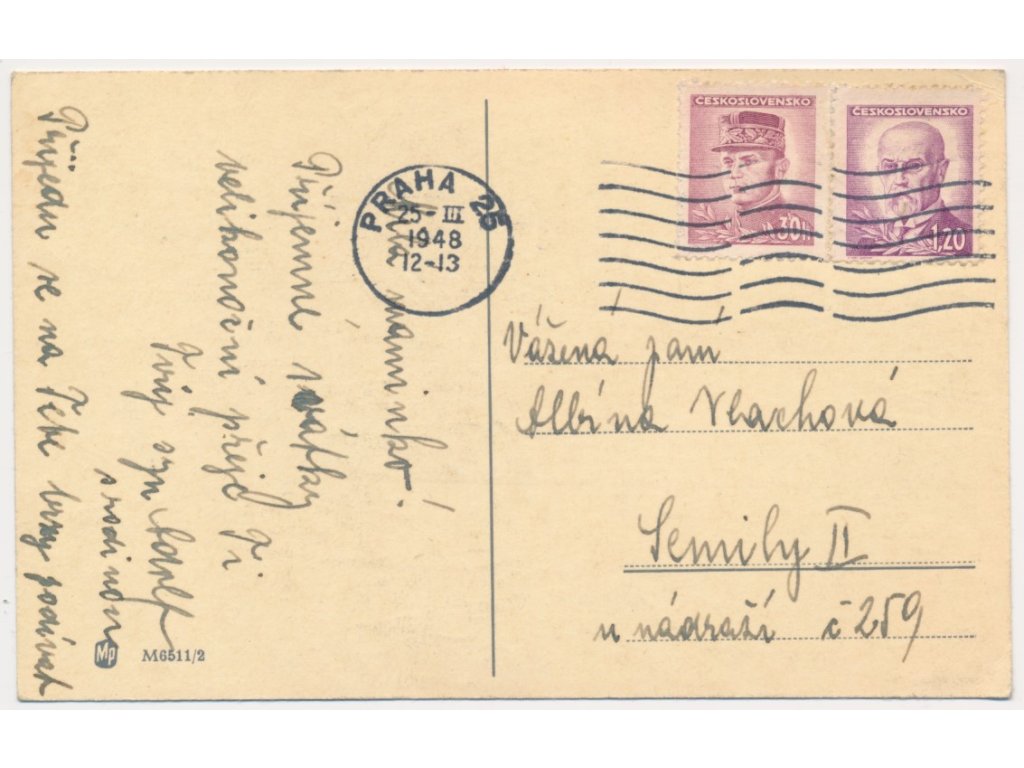 Milá maminko!
Příjemné svátky
velikonoční přeje Ti
Tvůj syn Adolf
s rodinou
Přijedu se na Tebe brzy podívat
Mp M6511/2
PRAHA 25
25-III
1948
12-13
ČESKOSLOVENSKO
30H
ČESKOSLOVENSKO
1,20
Vážená paní
Albína Vlachová
Semily II
u nádraží č 259